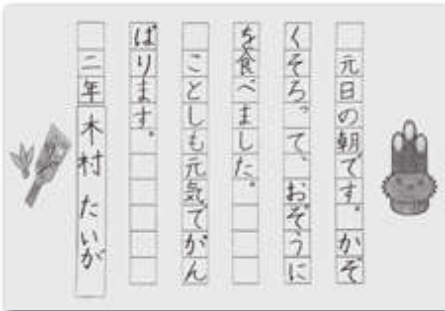 元日の朝です。かぞ
くそろって、おぞうに
を食べました。
ことしも元気でがん
ばります。
二年 木村 たいが